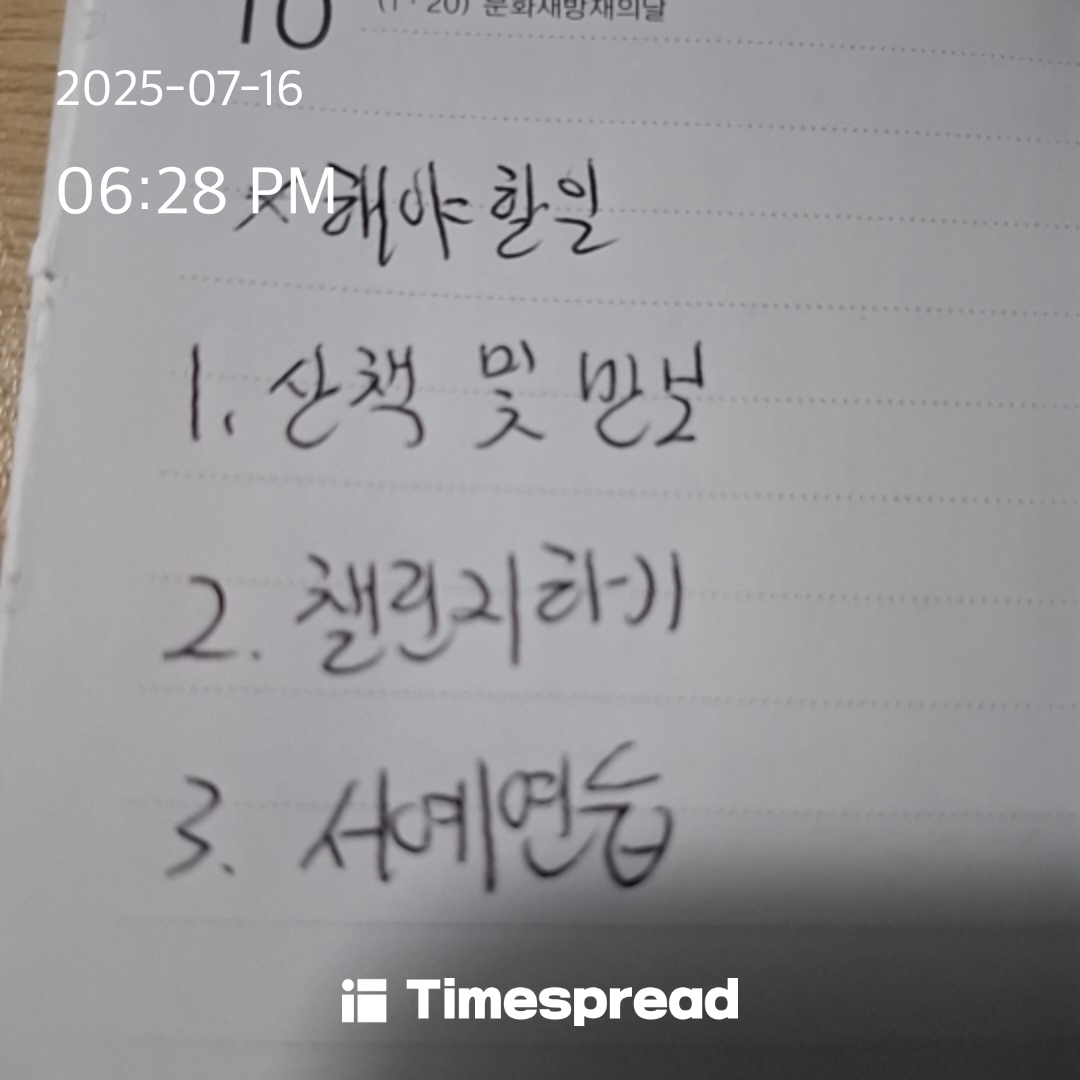 10 (1·20) 문화재방재의날
2025-07-16
06:28 PM
※해야할일
1. 산책 및 만보
2. 챌린지하기
3. 서예연습
Timespread